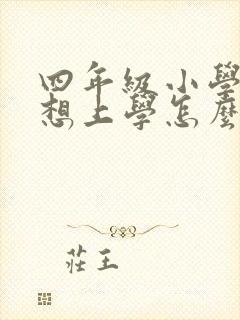 四年級小學
想上學怎麼
莊王